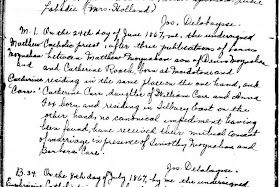 Labadie (Mrs. Holland)
Jos. Delabays
M. 1. On the 24th day of June 1867, we, the undersigned
Catholic priest, after three publications of banns
between Matthew Moynahan son of Denis Moynahan
and Catherine Roach, born at Maidstone and
residing in the same place on the one hand, and
Catherine Carr daughter of William Carr and Anna
Fox born and residing in Tilbury East on the
other hand, no canonical impediment having
been found, have received their mutual consent
of marriage in presence of Timothy Moynahan and
Barbara Carr.
Jos. Delabays.
B. 34. On the 8th day of July 1867, by me the undersigned